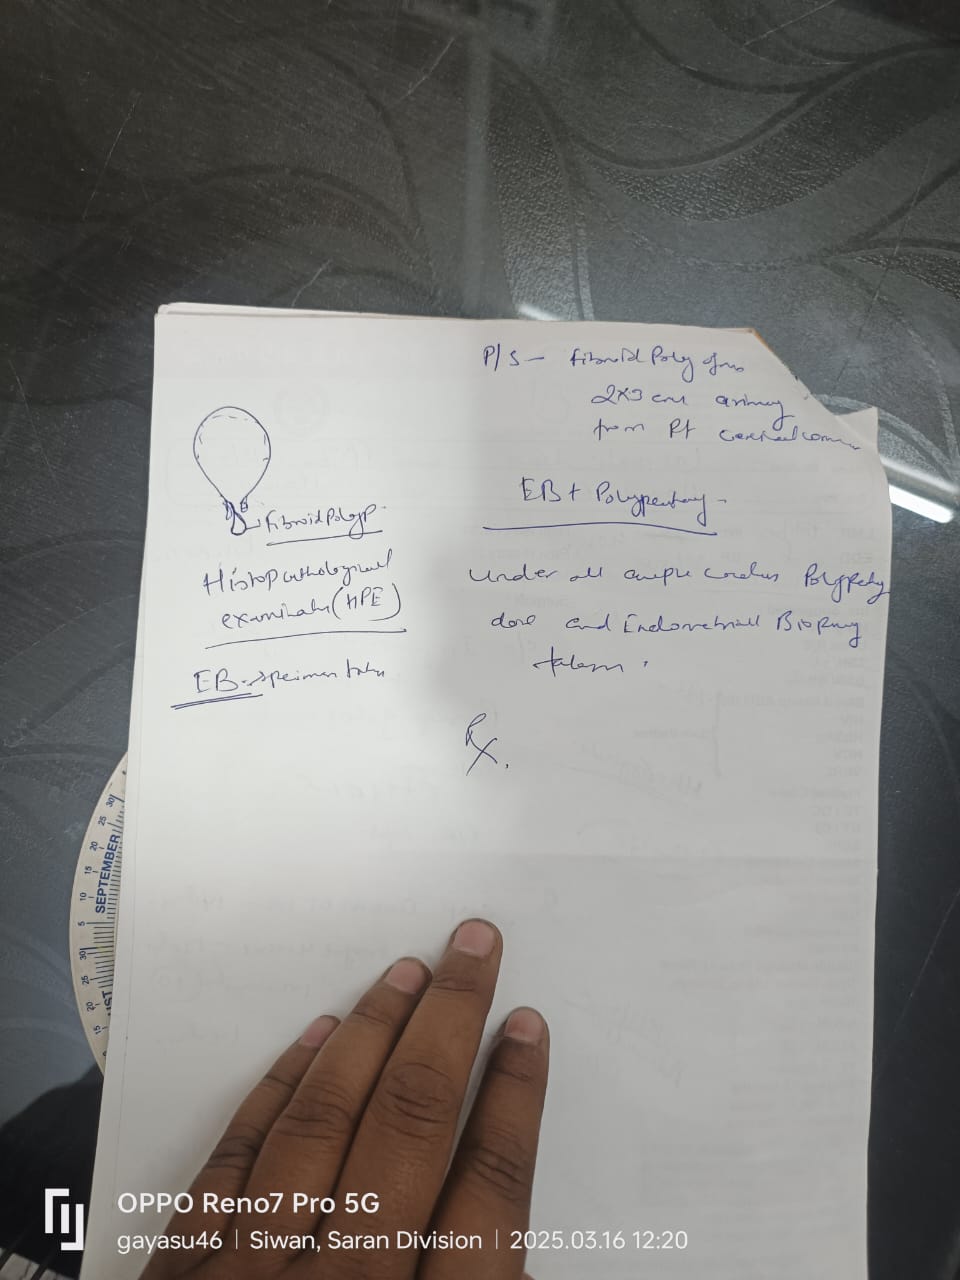 P/S - Fibroid Polyp of
2x3 cm arising
from Rt cervical
EB + Polypectomy -
Under all aseptic Polypecty
done and Endometrial Biopsy
taken.
Rx.
Fibroid Polyp
Histopathological
examination (HPE)
EB - specimen taken
30
25
20
15
10
5
SEPTEMBER
30
25
20
15
OPPO Reno7 Pro 5G
gayasu46 | Siwan, Saran Division | 2025.03.16 12:20